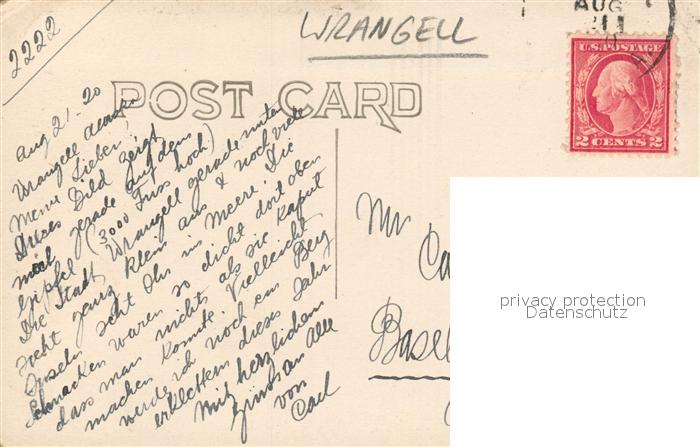 2222
WRANGELL
AUG
U.S. POSTAGE
2 CENTS 2
POST CARD
Aug 21-20
Wrangell Alaska
Meine Lieben,
Dieses Bild zeigt
mich gerade auf dem
Gipfel (3000 Fuss hoch)
Die Stadt Wrangell gerade unten
sieht ganz klein aus & noch viele
Inseln seht Ihr im Meere. Die
Schnacken waren so dicht dort oben
dass man nichts als sie kaput
machen konnte. Vielleicht
werde ich noch ein Berg
erklettern dieses Jahr
Mit herzlichem
Gruss an alle
von
Carl
Mr
Ca
Basel
privacy protection
Datenschutz